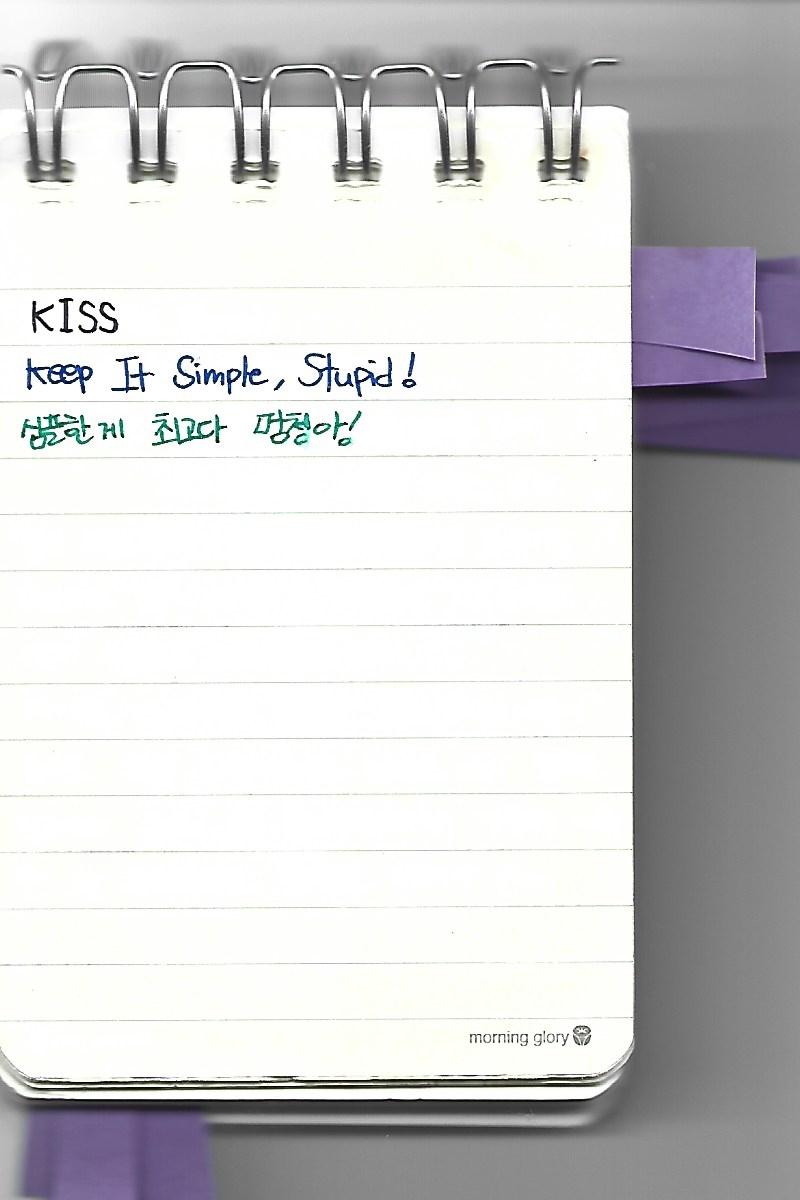 KISS
Keep It Simple, Stupid!
심플한게 최고다 멍청아!
morning glory